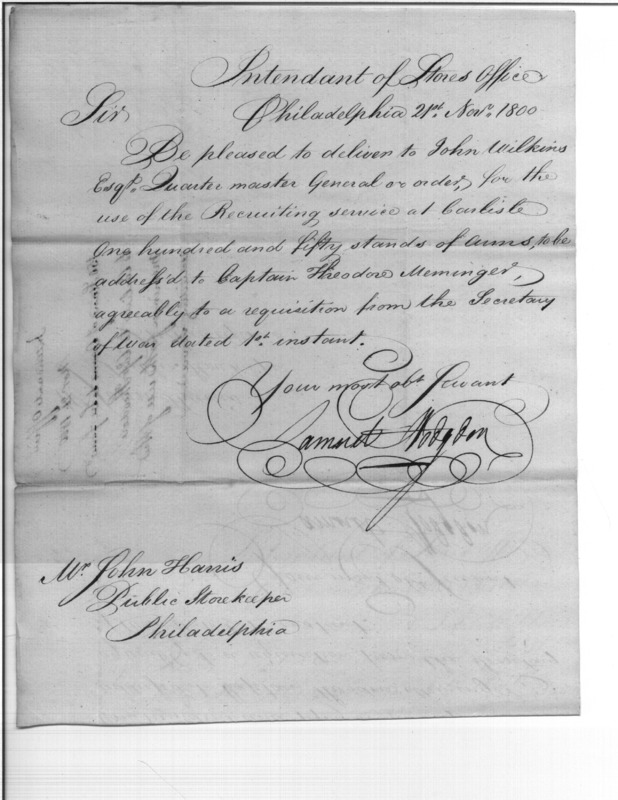 Intendant of Stores Office
Philadelphia 21st. Novr. 1800
Sir
Be pleased to deliver to John Wilkins
Esqr. Quarter master General or order, for the
use of the Recruiting service at Carlisle
One hundred and fifty stands of arms, to be
address'd to Captain Theodore Meminger,
agreeably to a requisition from the Secretary
of War dated 1st. instant.
Your most obt Servant
Samuel Hodgdon
Mr. John Harris
Public Storekeeper
Philadelphia